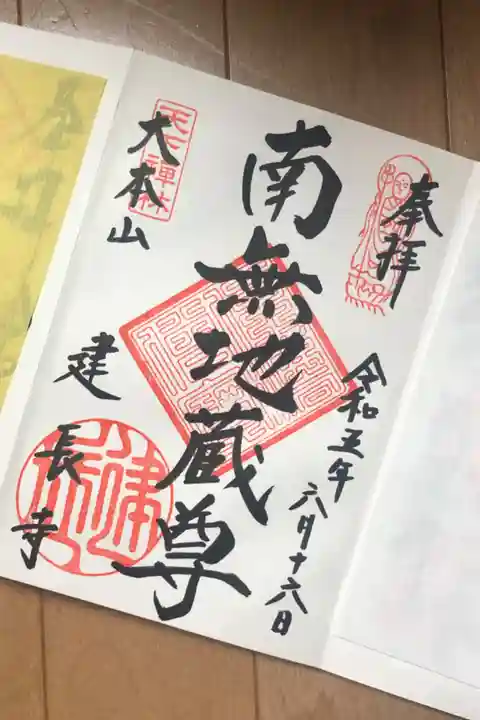 奉拝
令和五年
六月十六日
南無地蔵尊
天下禅林
大本山
建長寺